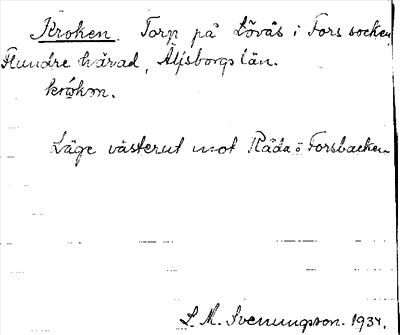 Kroken. Torp på Lövås i Fors socken
Flundre härad, Älfsborgs län.
krôhm.
Läge västerut mot Råda ö Forsbacken
L. M. Svenungsson. 1934.